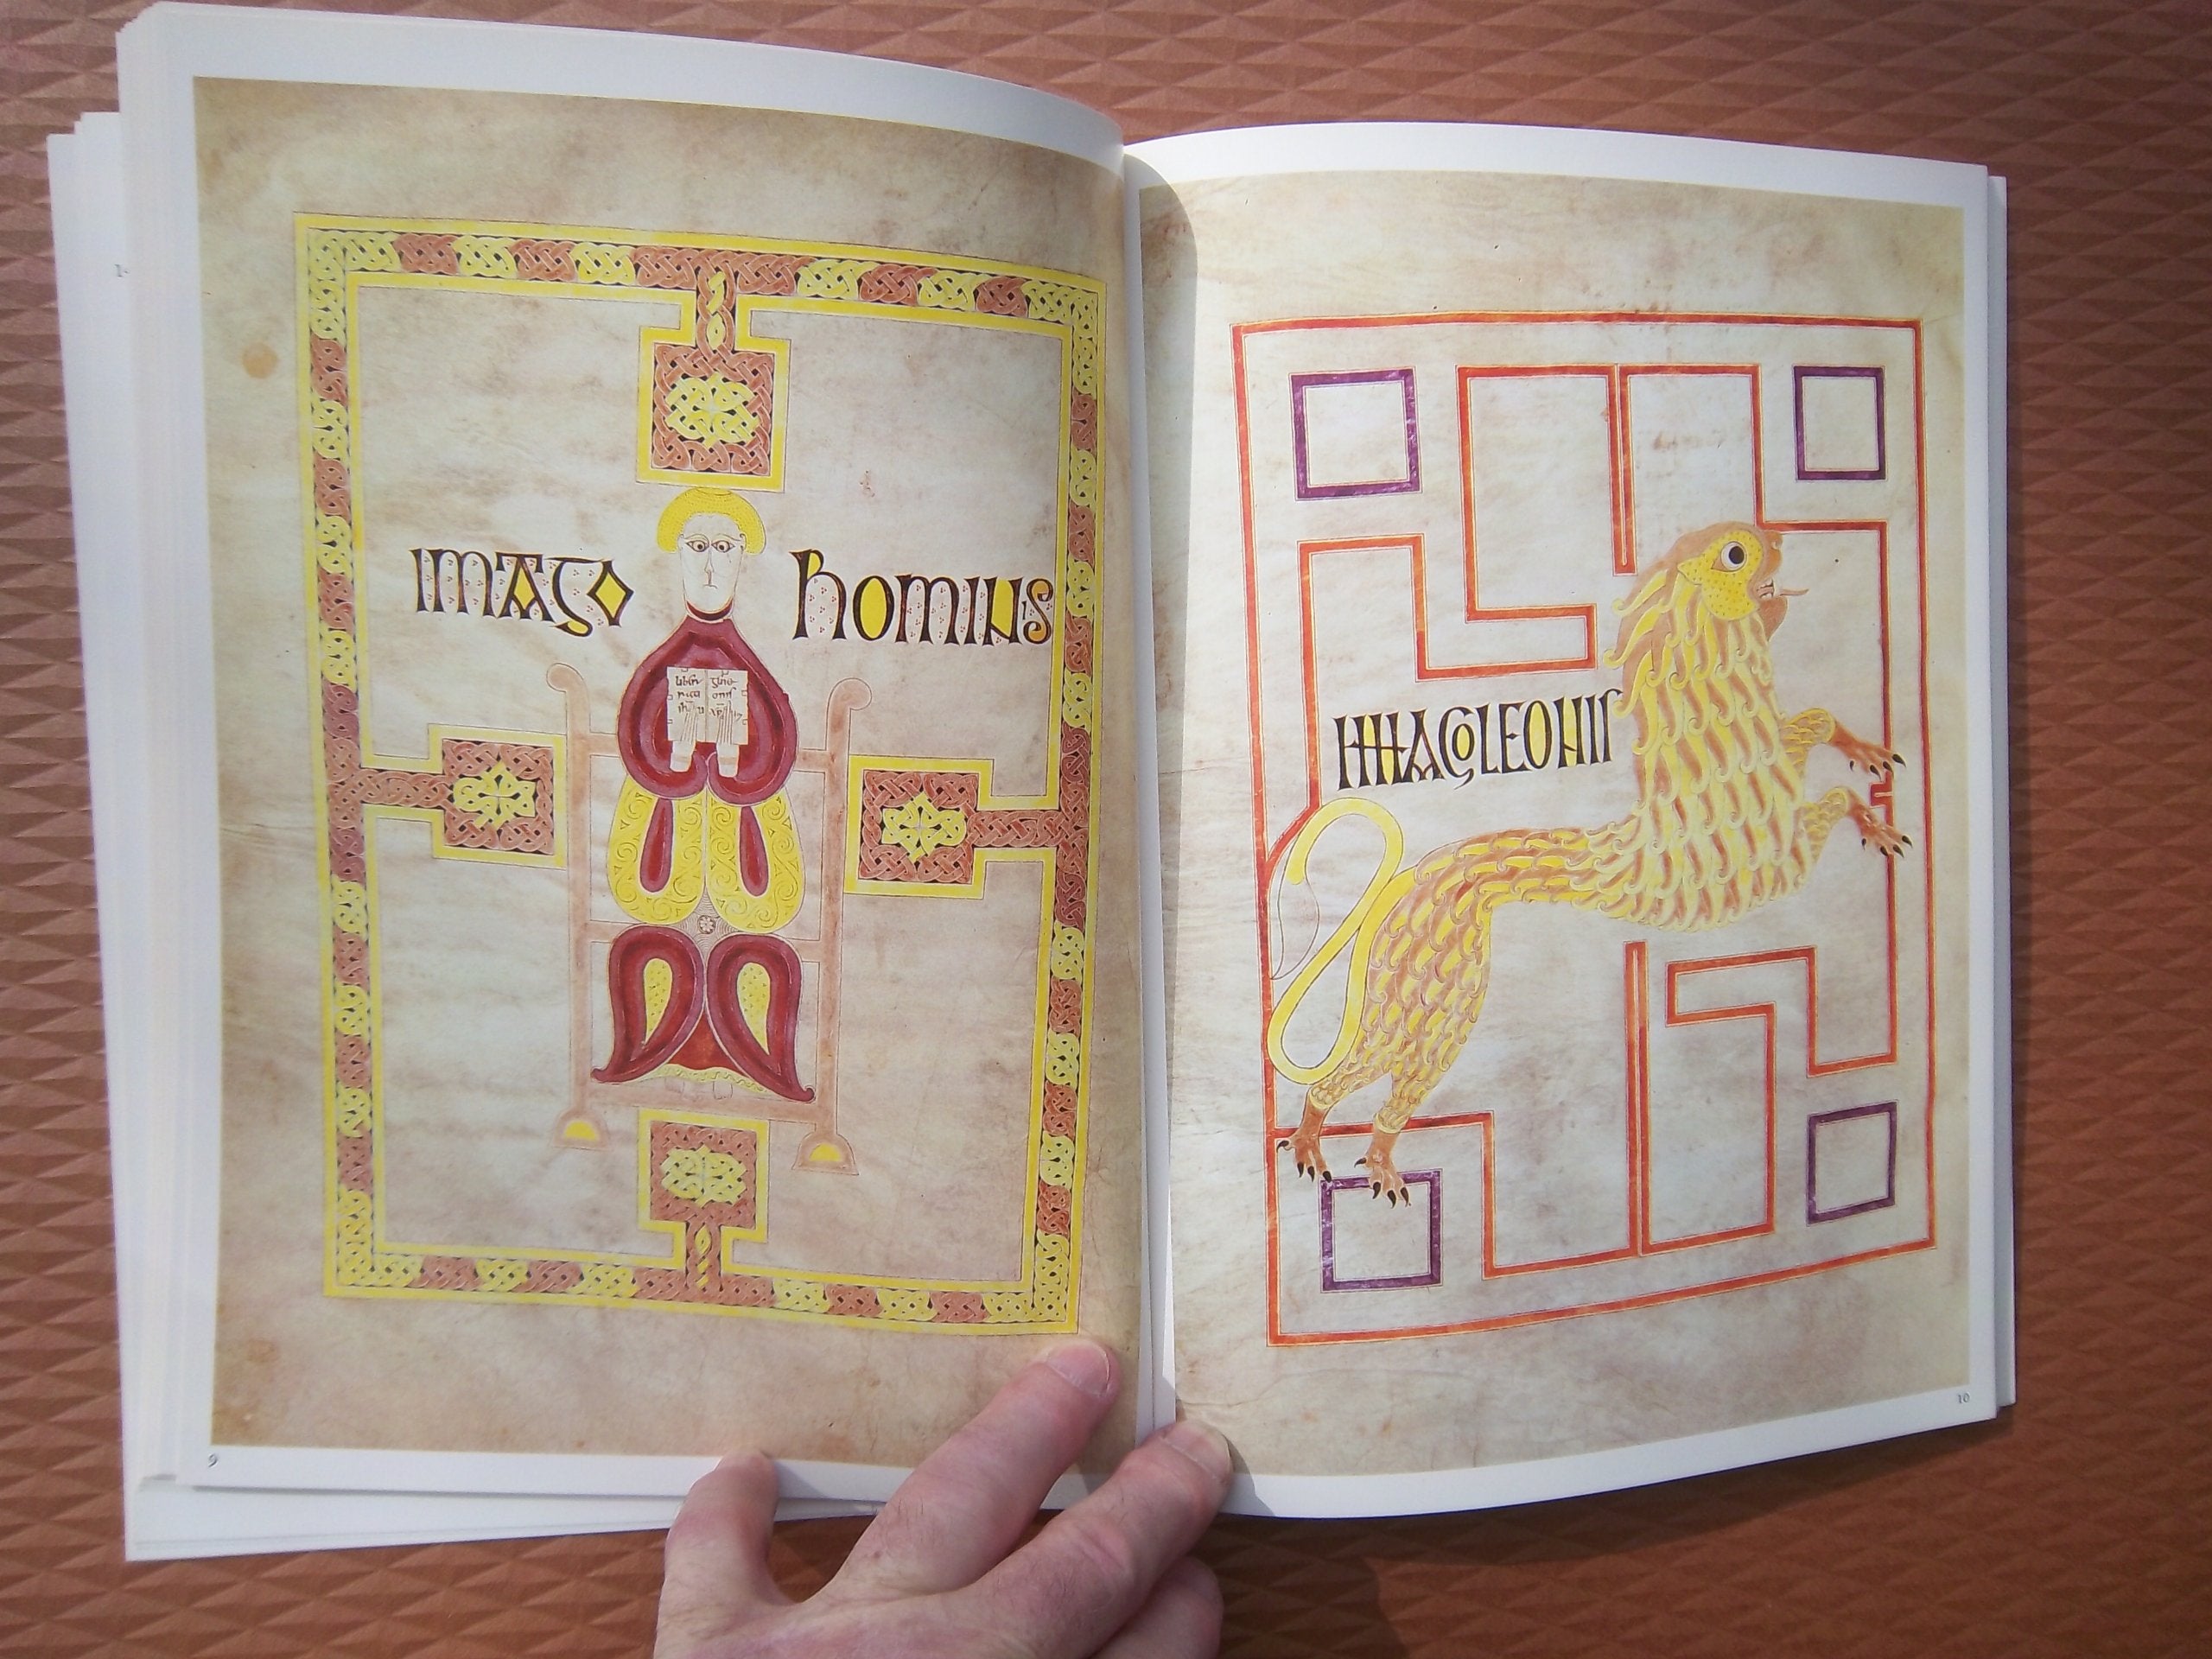 imago hominis
liber
imago leonis
9
10